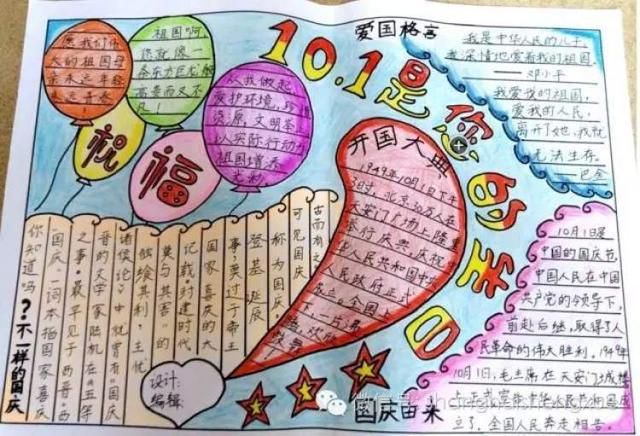 愿我们伟
大的祖国母
亲永远年轻
永远青春！
祖国啊
你就像一
条东方巨龙
高贵而又不
凡！
从我做起
爱护环境，珍惜
资源，文明举止
以实际行动为
祖国增添
光彩
祝
福
10.1是您的生日
爱国格言
我是中华人民的儿子，
我深情地爱着我的祖国。
——邓小平
我爱我的祖国，
爱我的人民，
离开了她，我就
无法生存。
——巴金
开国大典
1949年10月1日下午
3时，北京30万人在
天安门广场上隆重
举行庆典，庆祝中
华人民共和国中央
人民政府正式
成立。
10月1日是
中国的国庆节，
中国人民在中国
共产党的领导下，
前赴后继，取得了人
民革命的伟大胜利，1949年
10月1日，毛主席在天安门城楼
上正式宣布中华人民共和国成
立了，全国人民奔走相告。
国庆由来
你知道吗？不一样的国庆
“国庆”一词，本指国家喜庆
之事，最早见于西晋。西
晋的文学家陆机在《五等
诸侯论》中就曾有“国庆
独飨其利，主忧
莫与其害”的
记载，封建时代
国家喜庆的大
事，莫过于帝王
登基、诞辰
称为国庆，
可见国庆
设计：
编辑：
微信号：